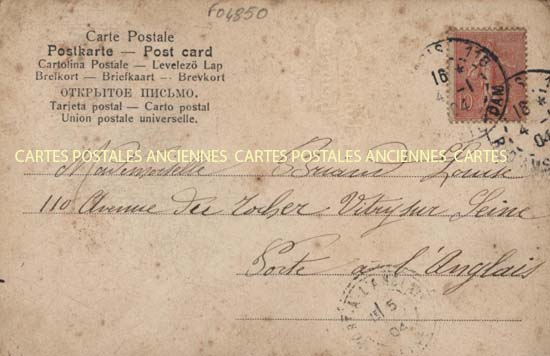 F04850
Carte Postale
Postkarte — Post card
Cartolina Postale — Levelező Lap
Brefkort — Briefkaart — Brevkort
ОТКРЫТОЕ ПИСЬМО.
Tarjeta postal — Carto postal
Union postale universelle.
CARTES POSTALES ANCIENNES CARTES POSTALES ANCIENNES CARTES POSTALES
Mademoiselle Briand Louise
110 Avenue du Rocher Vitry sur Seine
Porte à l'Anglais